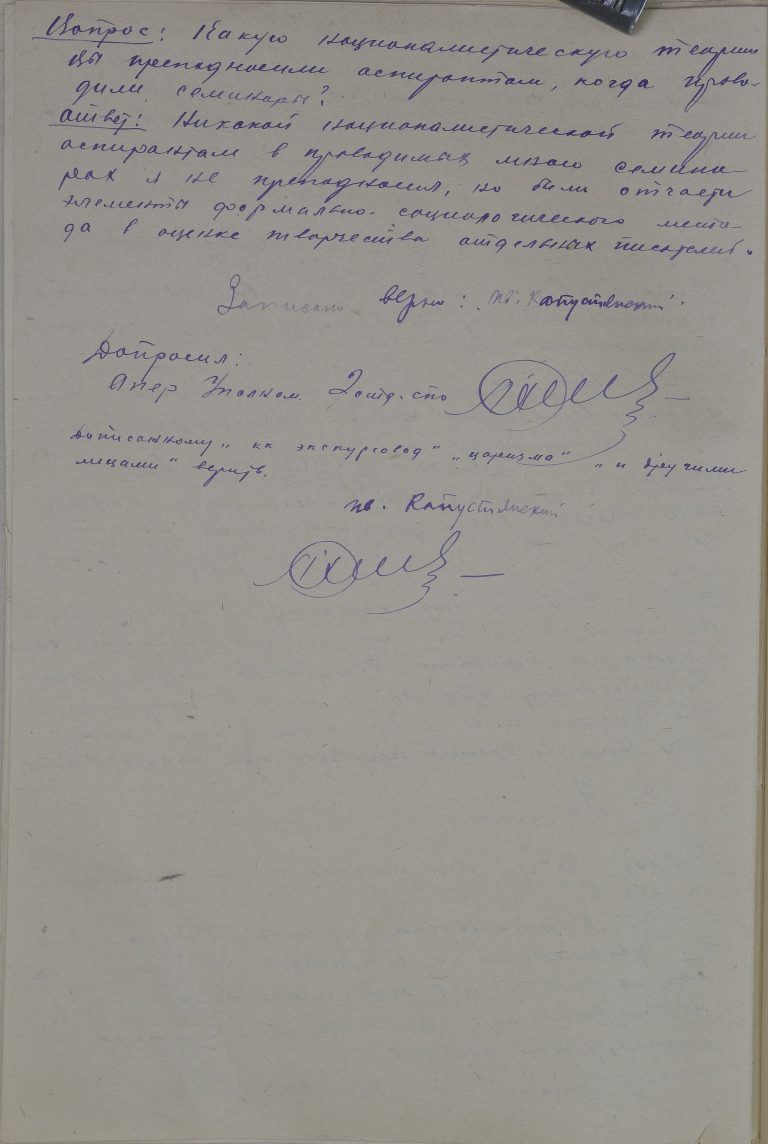 Вопрос: Какую националистическую теорию
вы преподносили аспирантам, когда прово-
дили семинары?
Ответ: Никакой националистической теории
аспирантам в проводимых мною семина-
рах я не преподносил, но были отчасти
элементы формально-социологического мето-
да в оценке творчества отдельных писателей.
Записано верно: Ив. Капустянский.
Допросил:
Опер Уполном. 2 отд. СПО
Дописанному „кк экскурсовод“ „царизма“ „и другими
лицами“ верить.
Ив. Капустянский